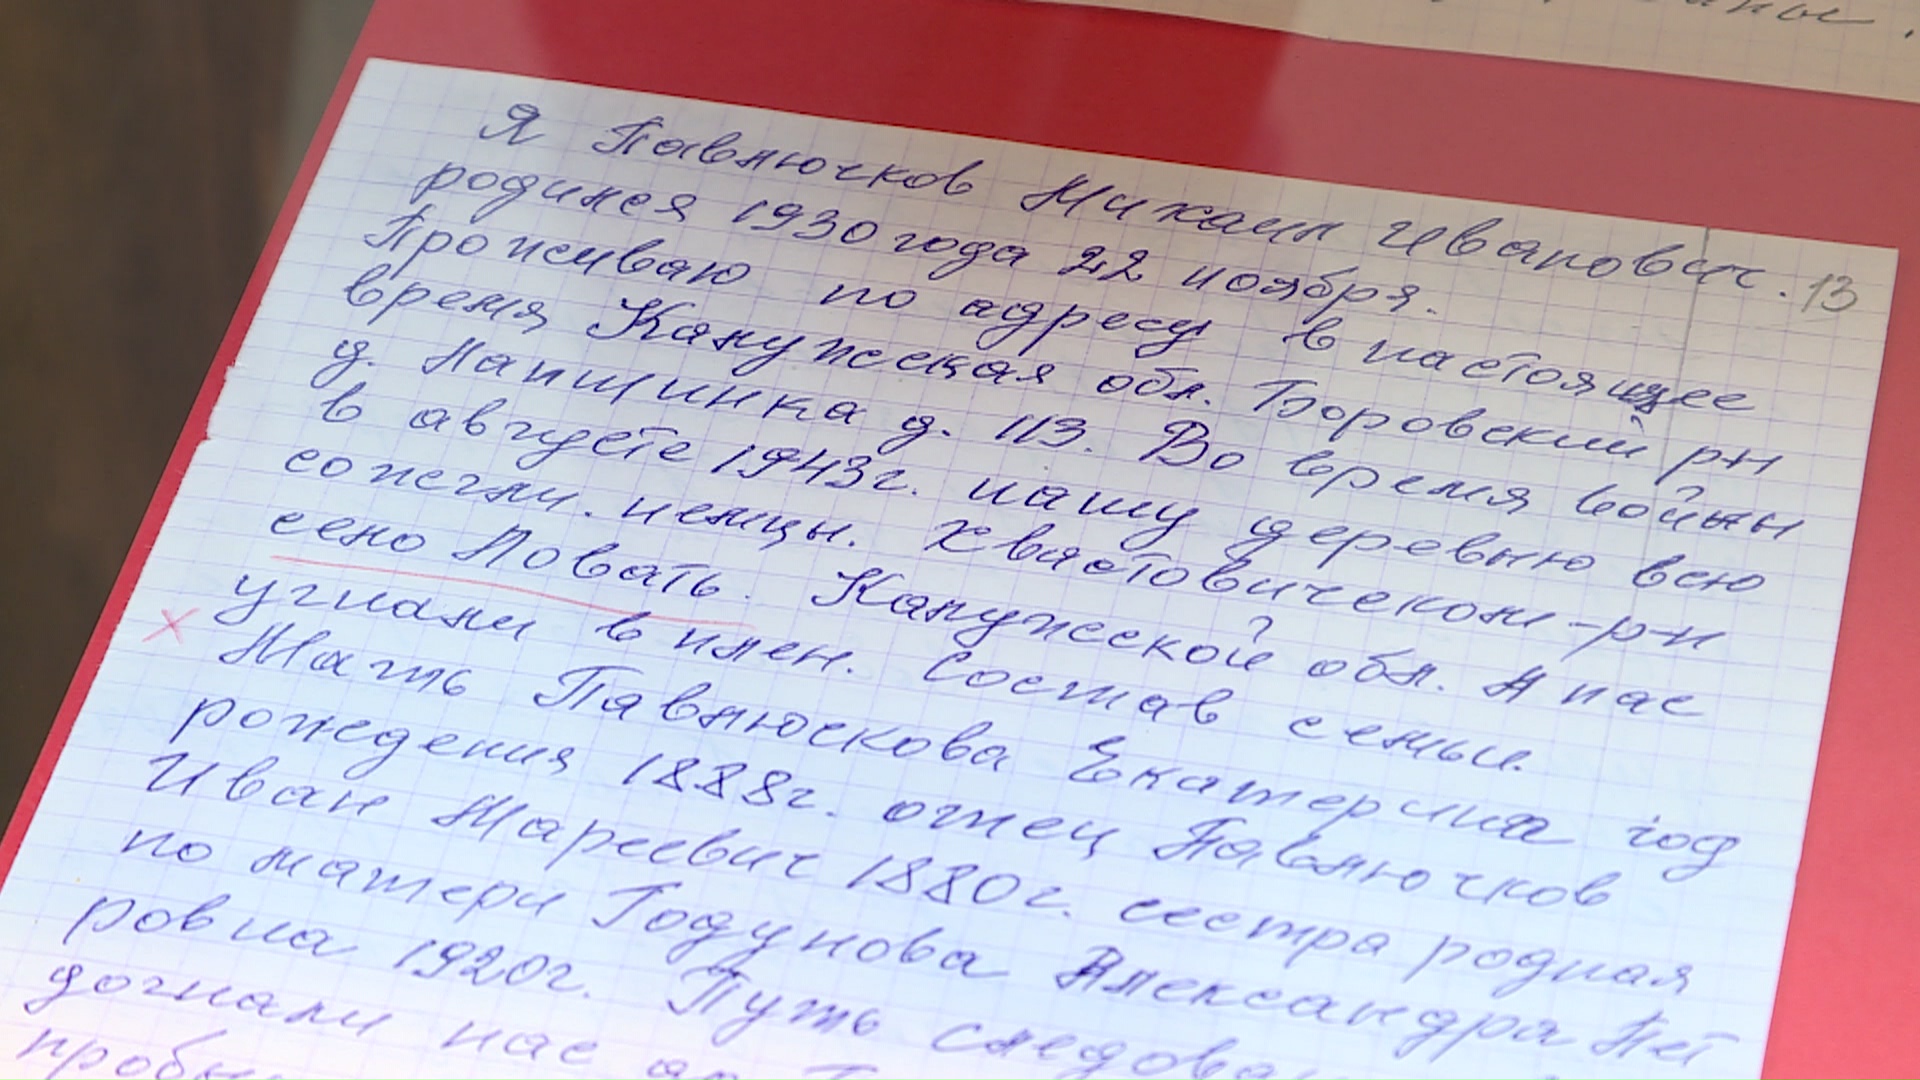 Я Павлючков Михаил Иванович. 13
родился 1930 года 22 ноября.
Проживаю по адресу в настоящее
время Калужская обл. Боровский р-н
д. Лапшинка д. 113. Во время войны
в августе 1943г. нашу деревню всю
сожгли. немцы. Хвастовичском-р-н
село Ловать. Калужской обл. А нас
угнали в плен. Состав семьи.
Мать Павлючкова Екатерина год
рождения 1888г. отец Павлючков
Иван Марсевич 1880г. сестра родная
по матери Годунова Александра Пет
ровна 1920г. Путь
догнали нас